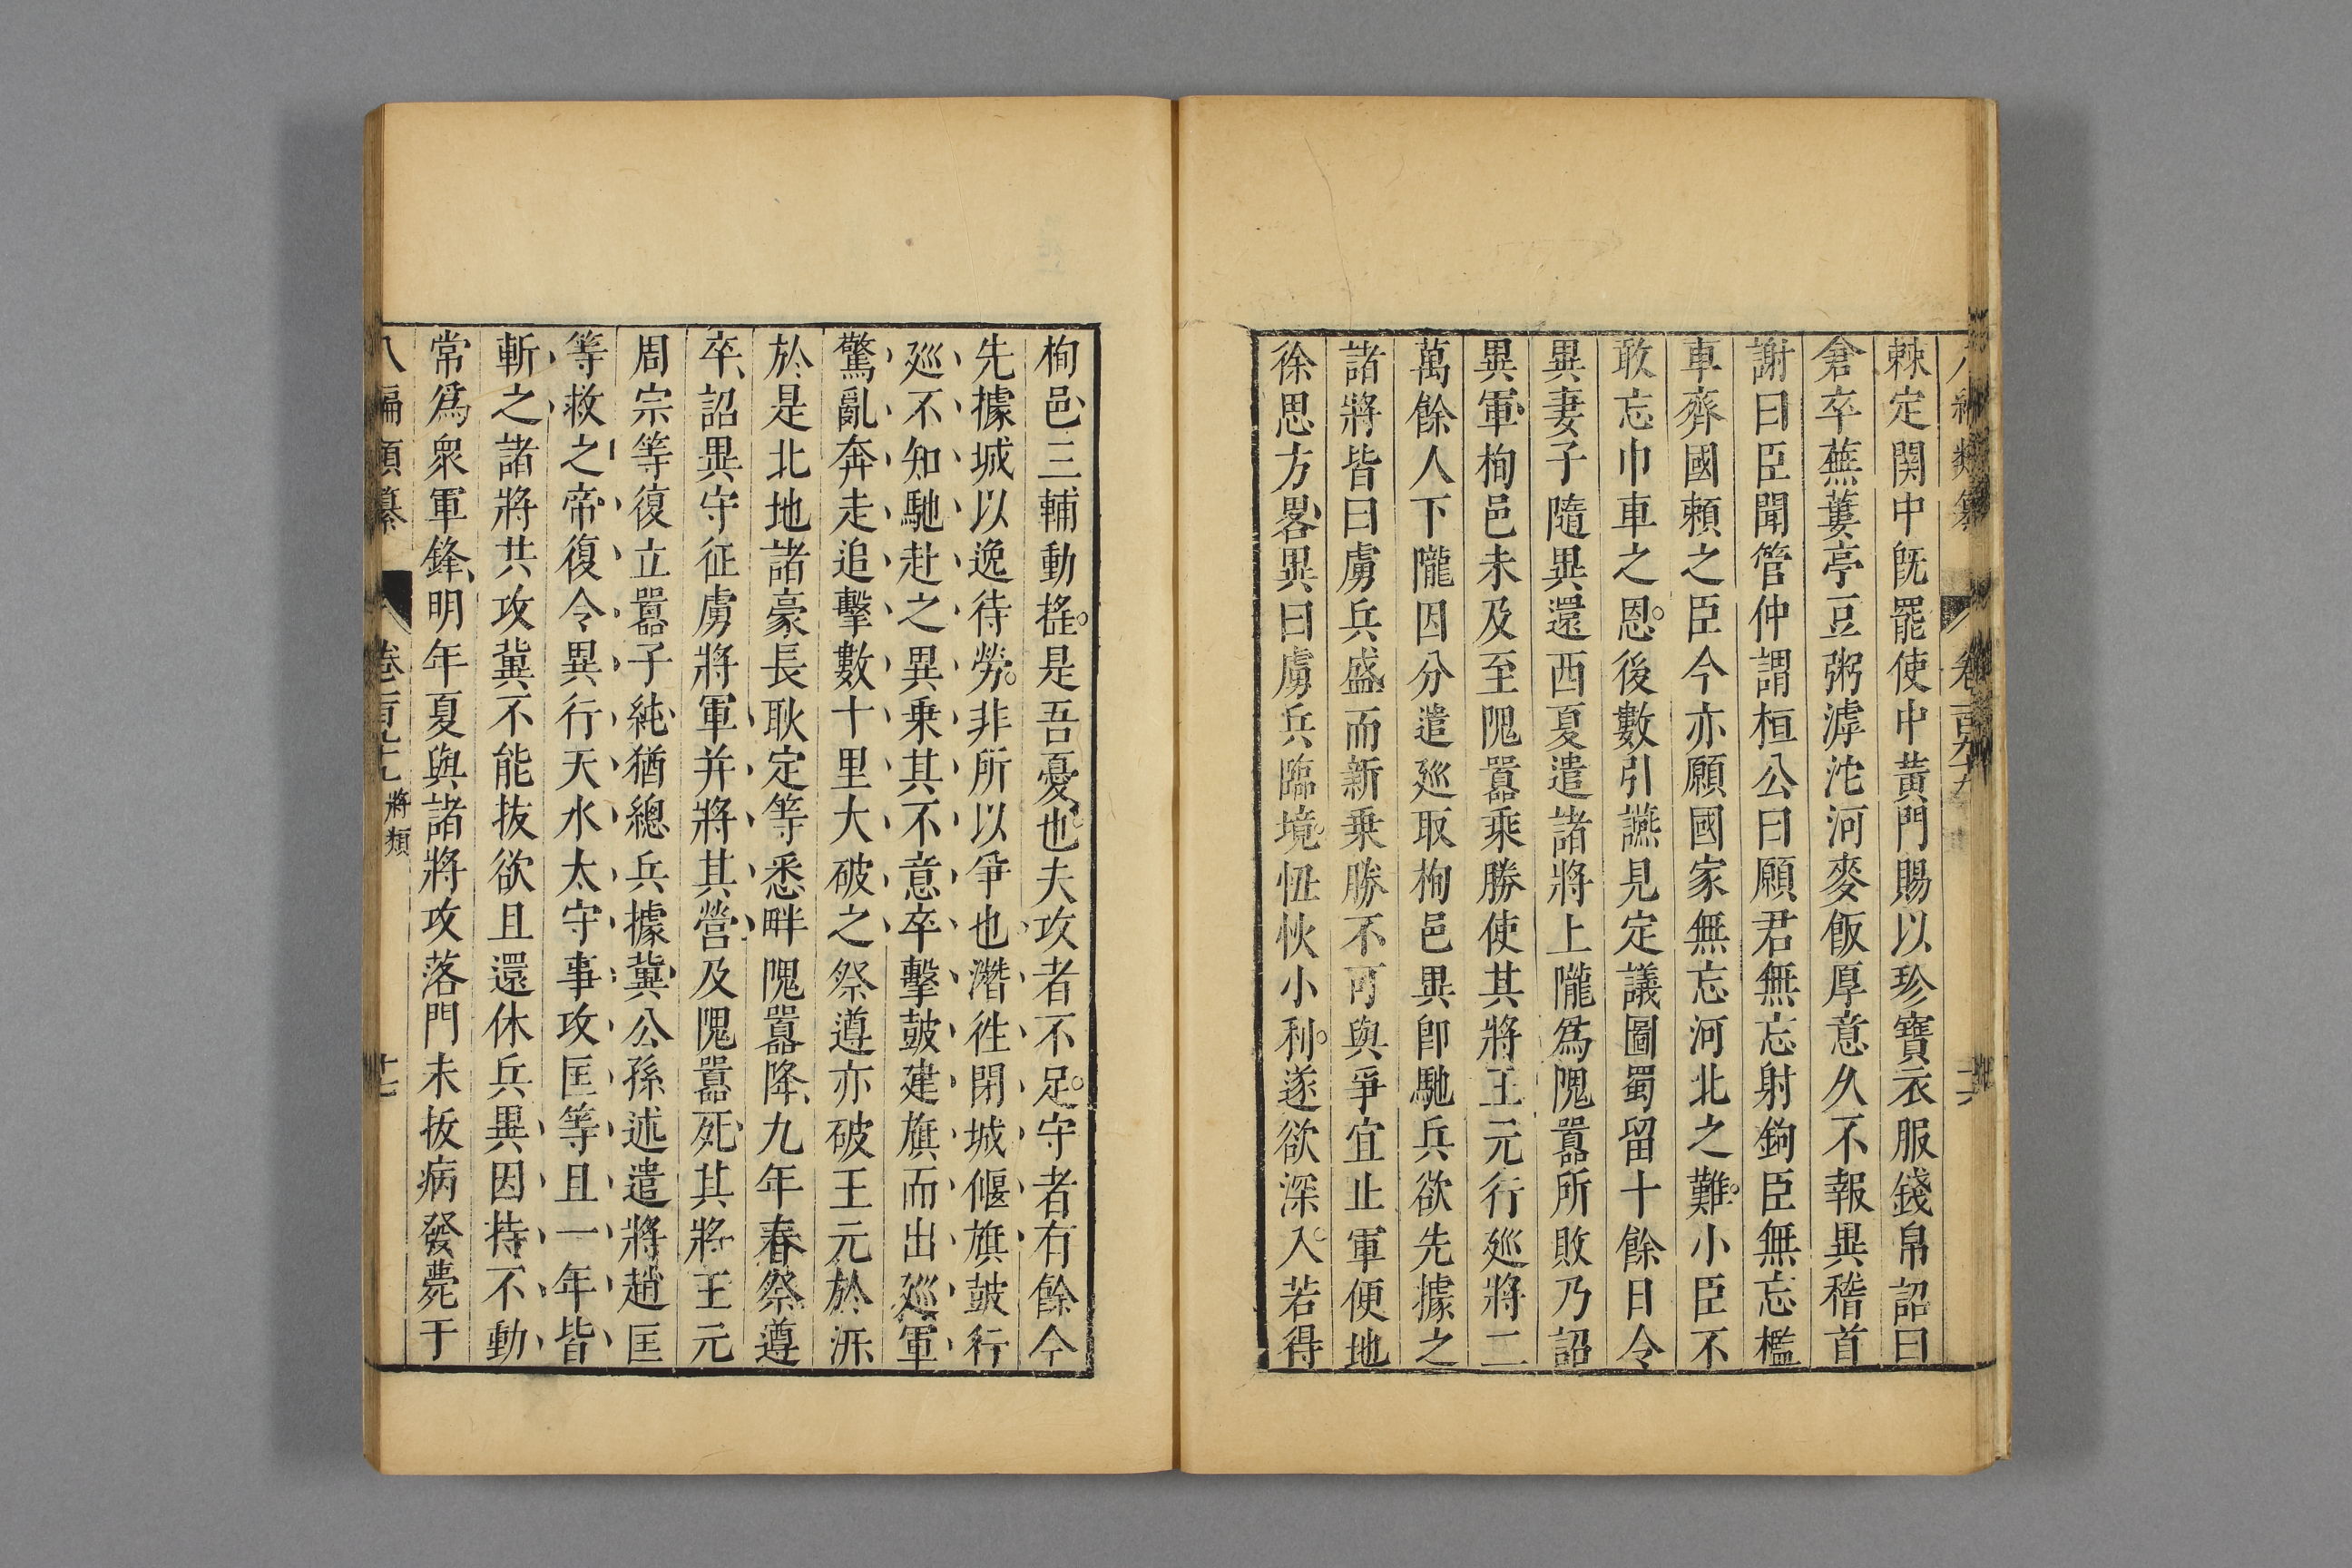 八編類纂 卷一百九十九 十六
棘定関中旣罷使中黃門賜以珍寶衣服錢帛詔曰
倉卒蕪蔞亭豆粥滹沱河麥飯厚意久不報異稽首
謝曰臣聞管仲謂桓公曰願君無忘射鉤臣無忘檻
車齊國賴之臣今亦願國家無忘河北之難小臣不
敢忘巾車之恩後數引讌見定議圖蜀留十餘日令
異妻子隨異還西夏遣諸將上隴爲隗囂所敗乃詔
異軍栒邑未及至隗囂乘勝使其將王元行廵將二
萬餘人下隴因分遣廵取栒邑異卽馳兵欲先據之
諸將皆曰虜兵盛而新乗勝不可與爭宜止軍便地
徐思方畧異曰虜兵臨境忸忕小利遂欲深入若得
栒邑三輔動揺是吾憂也夫攻者不足守者有餘今
先據城以逸待勞非所以爭也潛徃閉城偃旗鼓行
廵不知馳赴之異乗其不意卒擊鼓建旗而出廵軍
驚亂奔走追擊數十里大破之祭遵亦破王元於汧
於是北地諸豪長耿定等悉畔隗囂降九年春祭遵
卒詔異守征虜將軍并將其營及隗囂死其將王元
周宗等復立囂子純猶總兵據冀公孫述遣將趙匡
等救之帝復令異行天水太守事攻匡等且一年皆
斬之諸將共攻冀不能抜欲且還休兵異因持不動
常爲衆軍鋒明年夏與諸將攻落門未抜病發薨于
八編類纂 卷一百九十九 將類 十七